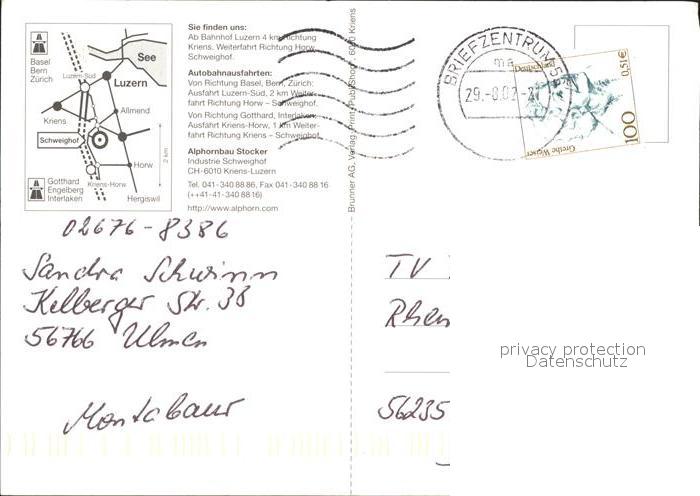 Basel
Bern
Zürich
See
Luzern-Süd
Luzern
Kriens
Allmend
Schweighof
Horw
2 km
Gotthard
Engelberg
Interlaken
Kriens-Horw
Hergiswil
Sie finden uns:
Ab Bahnhof Luzern 4 km Richtung
Kriens. Weiterfahrt Richtung Horw
Schweighof.
Autobahnausfahrten:
Von Richtung Basel, Bern, Zürich:
Ausfahrt Luzern-Süd, 2 km Weiter-
fahrt Richtung Horw – Schweighof.
Von Richtung Gotthard, Interlaken:
Ausfahrt Kriens-Horw, 1 km Weiter-
fahrt Richtung Kriens – Schweighof.
Alphornbau Stocker
Industrie Schweighof
CH-6010 Kriens-Luzern
Tel. 041-340 88 86, Fax 041-340 88 16
(++41-41-340 88 16)
http://www.alphorn.com
Brunner AG, Verlag 6010 Kriens
BRIEFZENTRUM
29.-8.02
Deutschland
0,51€
100
Grethe Weiser
02676-8386
Sandra Schwinn
Kelberger Str. 38
56766 Ulmen
Montabaur
TV
Rhen
56235
privacy protection
Datenschutz